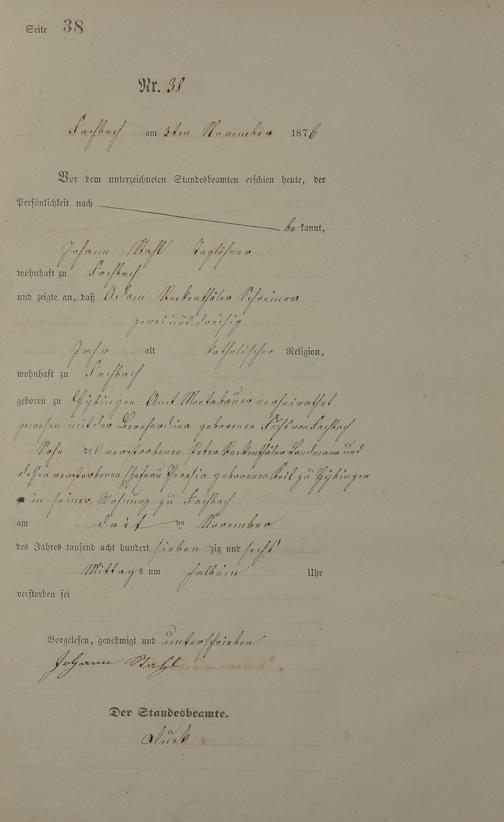 Seite 38
Nr. 38
Fachbach am 3ten November 1876
Vor dem unterzeichneten Standesbeamten erschien heute, der
Persönlichkeit nach
be kannt,
Johann Stahl Taglöhner
wohnhaft zu Fachbach
und zeigte an, daß Adam Reckenthäler Schreiner
zwei und dreißig
Jahr alt katholischer Religion,
wohnhaft zu Fachbach
geboren zu Amt Montabaur verheirathet
gewesen mit der Bernhardina geborenen von Fachbach
Sohn des verstorbenen Peter Reckenthäler Landmann und
dessen verstorbenen Ehefrau Theresia geborenen Keil zu
in seiner Wohnung zu Fachbach
am ten November
des Jahres tausend acht hundert sieben zig und sechs
Mittags um halb ein Uhr
verstorben sei
Vorgelesen, genehmigt und unterschrieben
Johann Stahl
Der Standesbeamte.